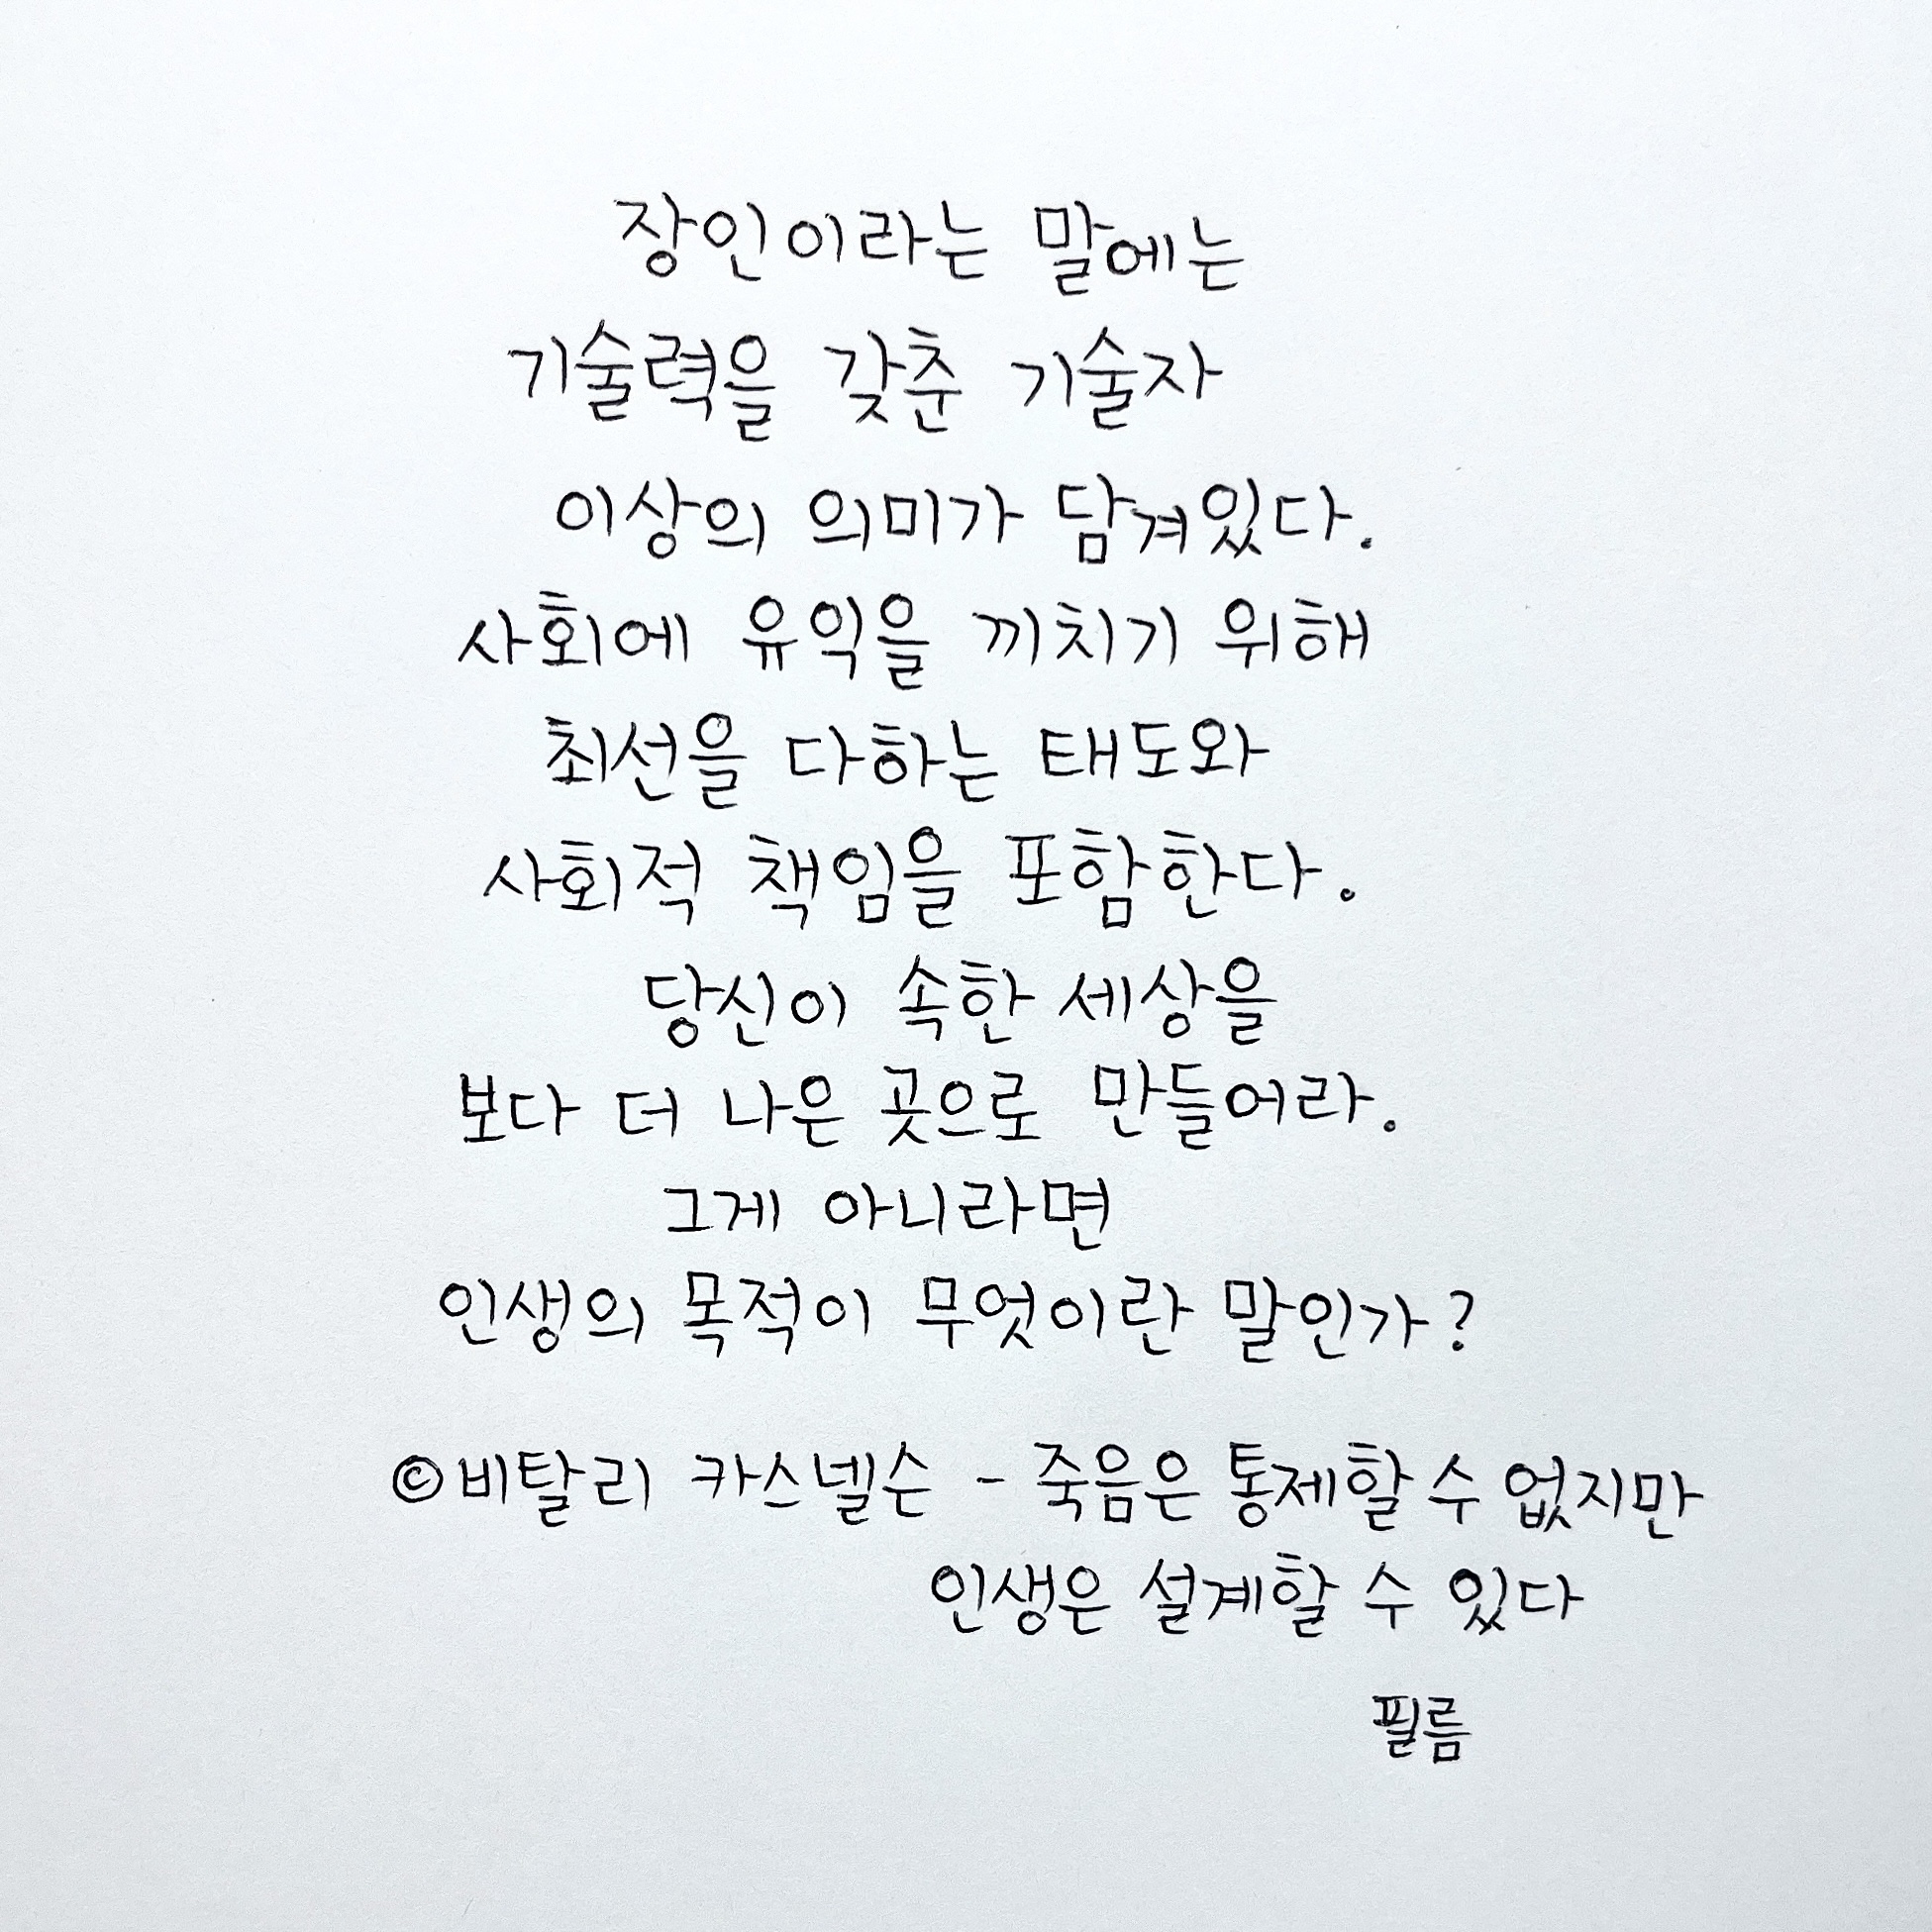 장인이라는 말에는
기술력을 갖춘 기술자
이상의 의미가 담겨있다.
사회에 유익을 끼치기 위해
최선을 다하는 태도와
사회적 책임을 포함한다.
당신이 속한 세상을
보다 더 나은 곳으로 만들어라.
그게 아니라면
인생의 목적이 무엇이란 말인가?
©비탈리 카스넬슨 - 죽음은 통제할 수 없지만
인생은 설계할 수 있다
필름